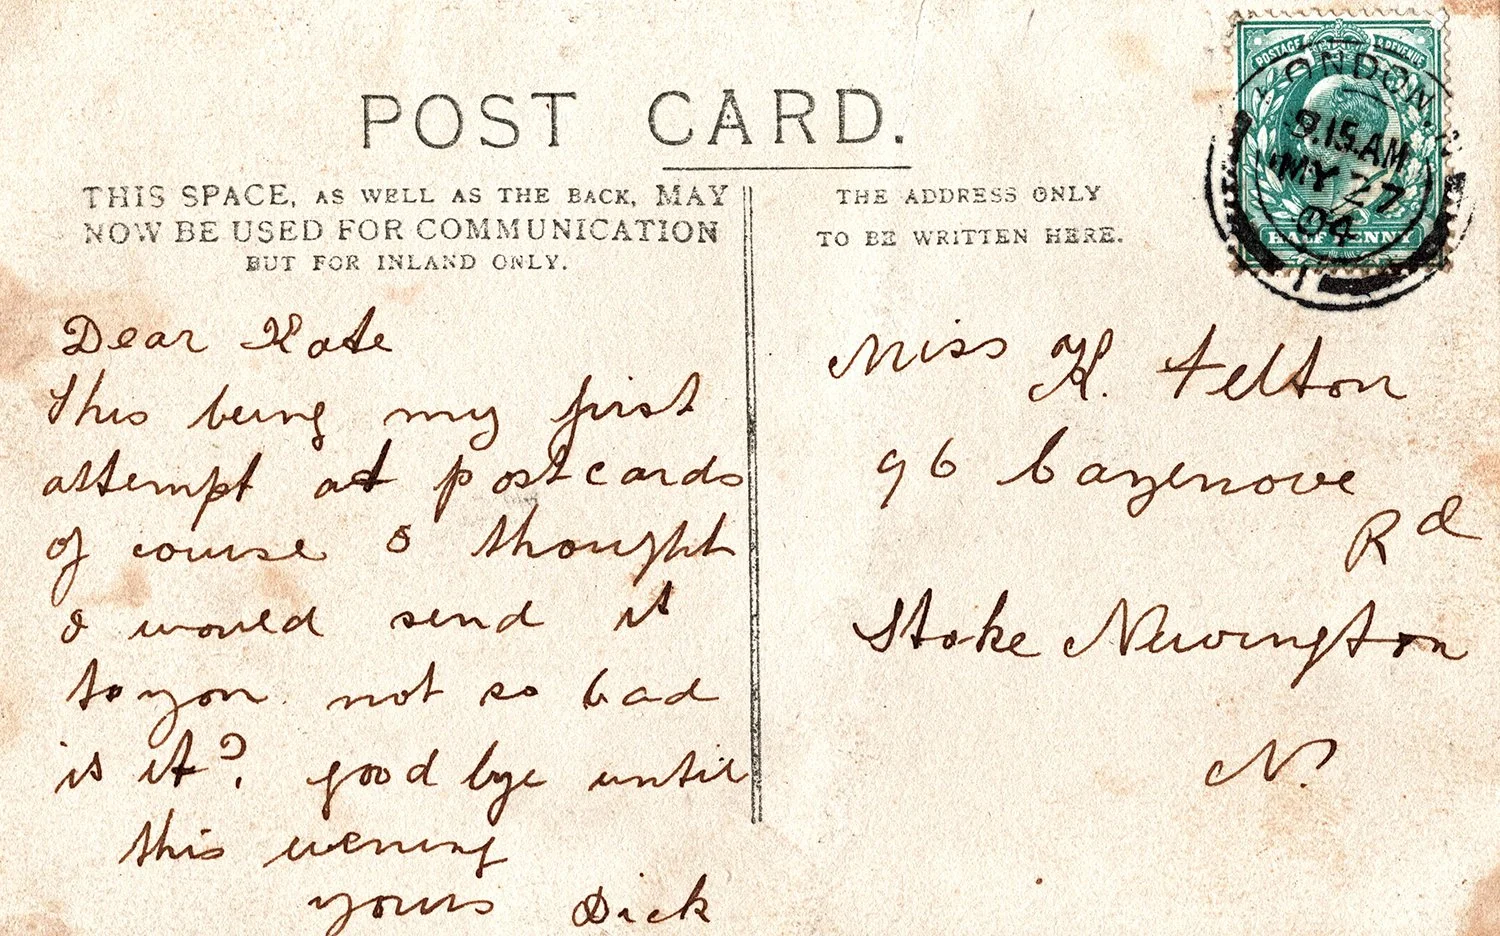 POST CARD.
THIS SPACE, AS WELL AS THE BACK, MAY
NOW BE USED FOR COMMUNICATION
BUT FOR INLAND ONLY.
THE ADDRESS ONLY
TO BE WRITTEN HERE.
POSTAGE & REVENUE
LONDON
9.15 AM
MY 27
04
HALF PENNY
1
Dear Kate
This being my first
attempt at postcards
of course I thought
I would send it
to you not so bad
is it? good bye until
this evening
yours Dick
Miss K. Felton
96 Cazenove
Rd
Stoke Newington
N.